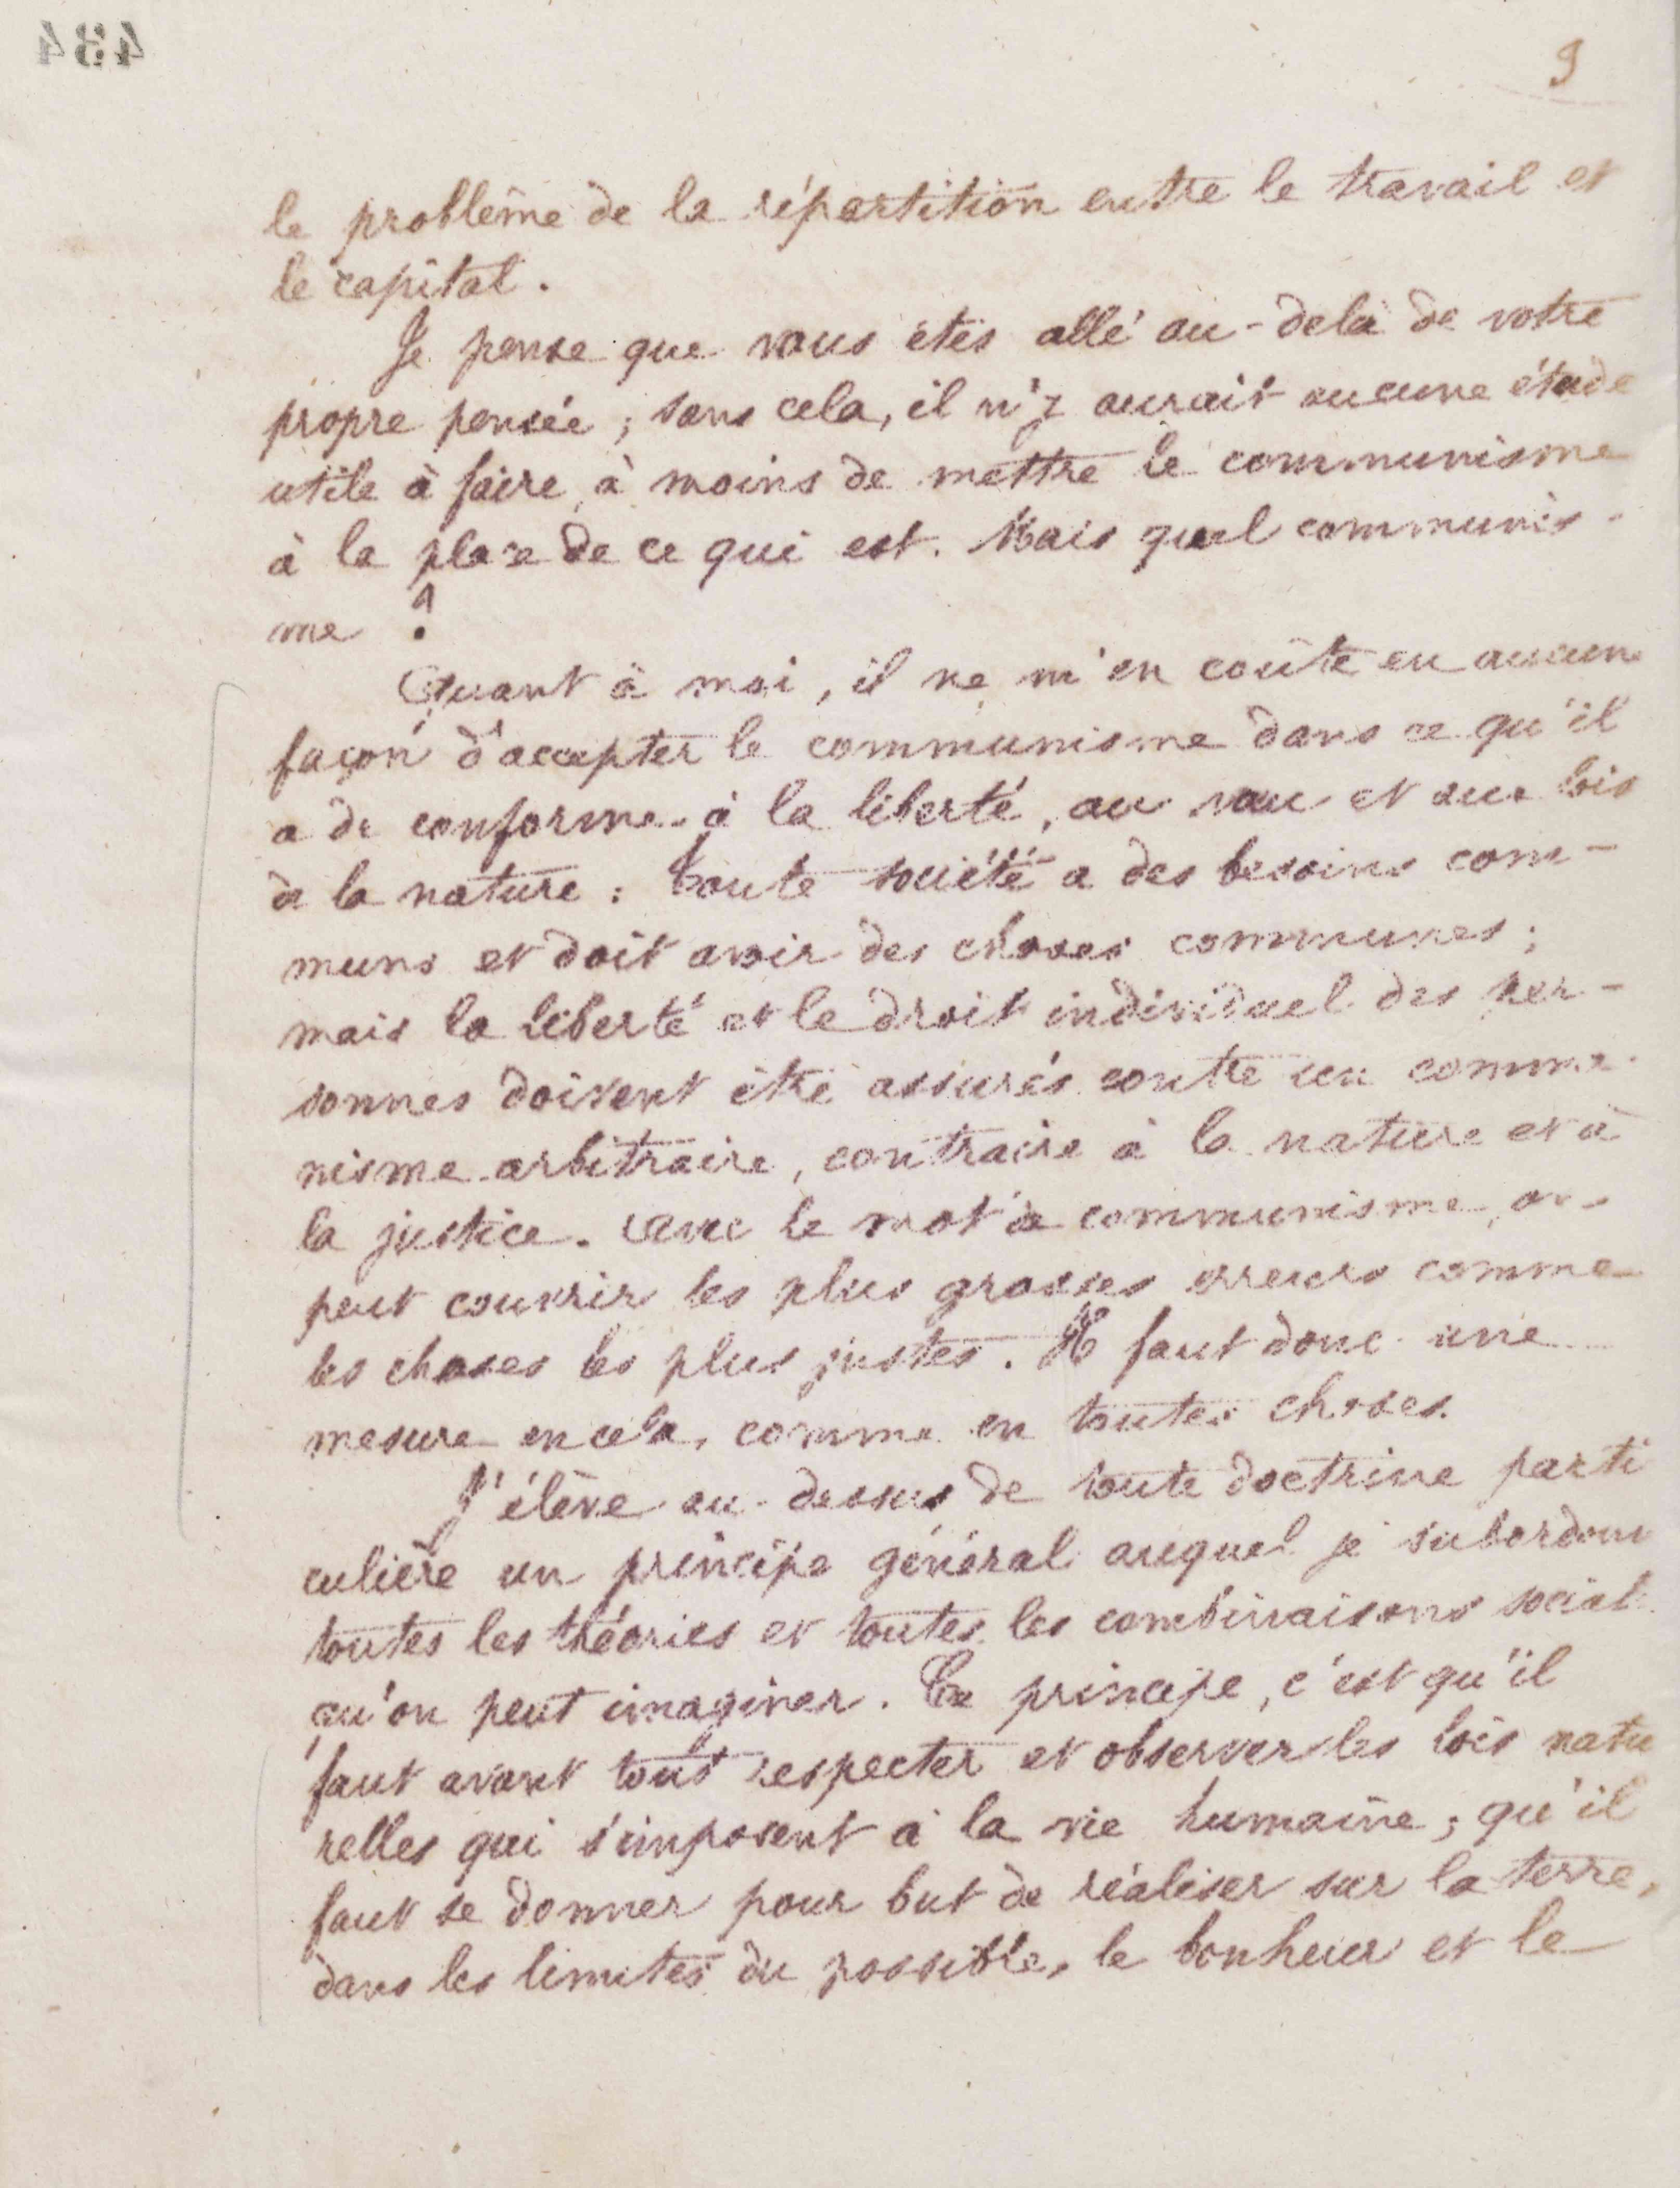 484
9
le problème de la répartition entre le travail et
le capital.
Je pense que vous êtes allé au-delà de votre
propre pensée ; sans cela, il n'y aurait aucune étude
utile à faire, à moins de mettre le communisme
à la place de ce qui est. Mais quel communis-
me ?
Quant à moi, il ne m'en coûte en aucune
façon d'accepter le communisme dans ce qu'il
a de conforme à la liberté, au vœu et aux lois
de la nature : Toute société a des besoins com-
muns et doit avoir des choses communes ;
mais la liberté et le droit individuel des per-
sonnes doivent être assurés contre un commu-
nisme arbitraire, contraire à la nature et à
la justice. Avec le mot de communisme, on
peut couvrir les plus grosses erreurs comme
les choses les plus justes. Il faut donc une
mesure en cela, comme en toutes choses.
J'élève au-dessus de toute doctrine parti
culière un principe général auquel je subordonne
toutes les théories et toutes les combinaisons social
qu'on peut imaginer. Ce principe, c'est qu'il
faut avant tout respecter et observer les lois natu
relles qui s'imposent à la vie humaine ; qu'il
faut se donner pour but de réaliser sur la terre,
dans les limites du possible, le bonheur et le